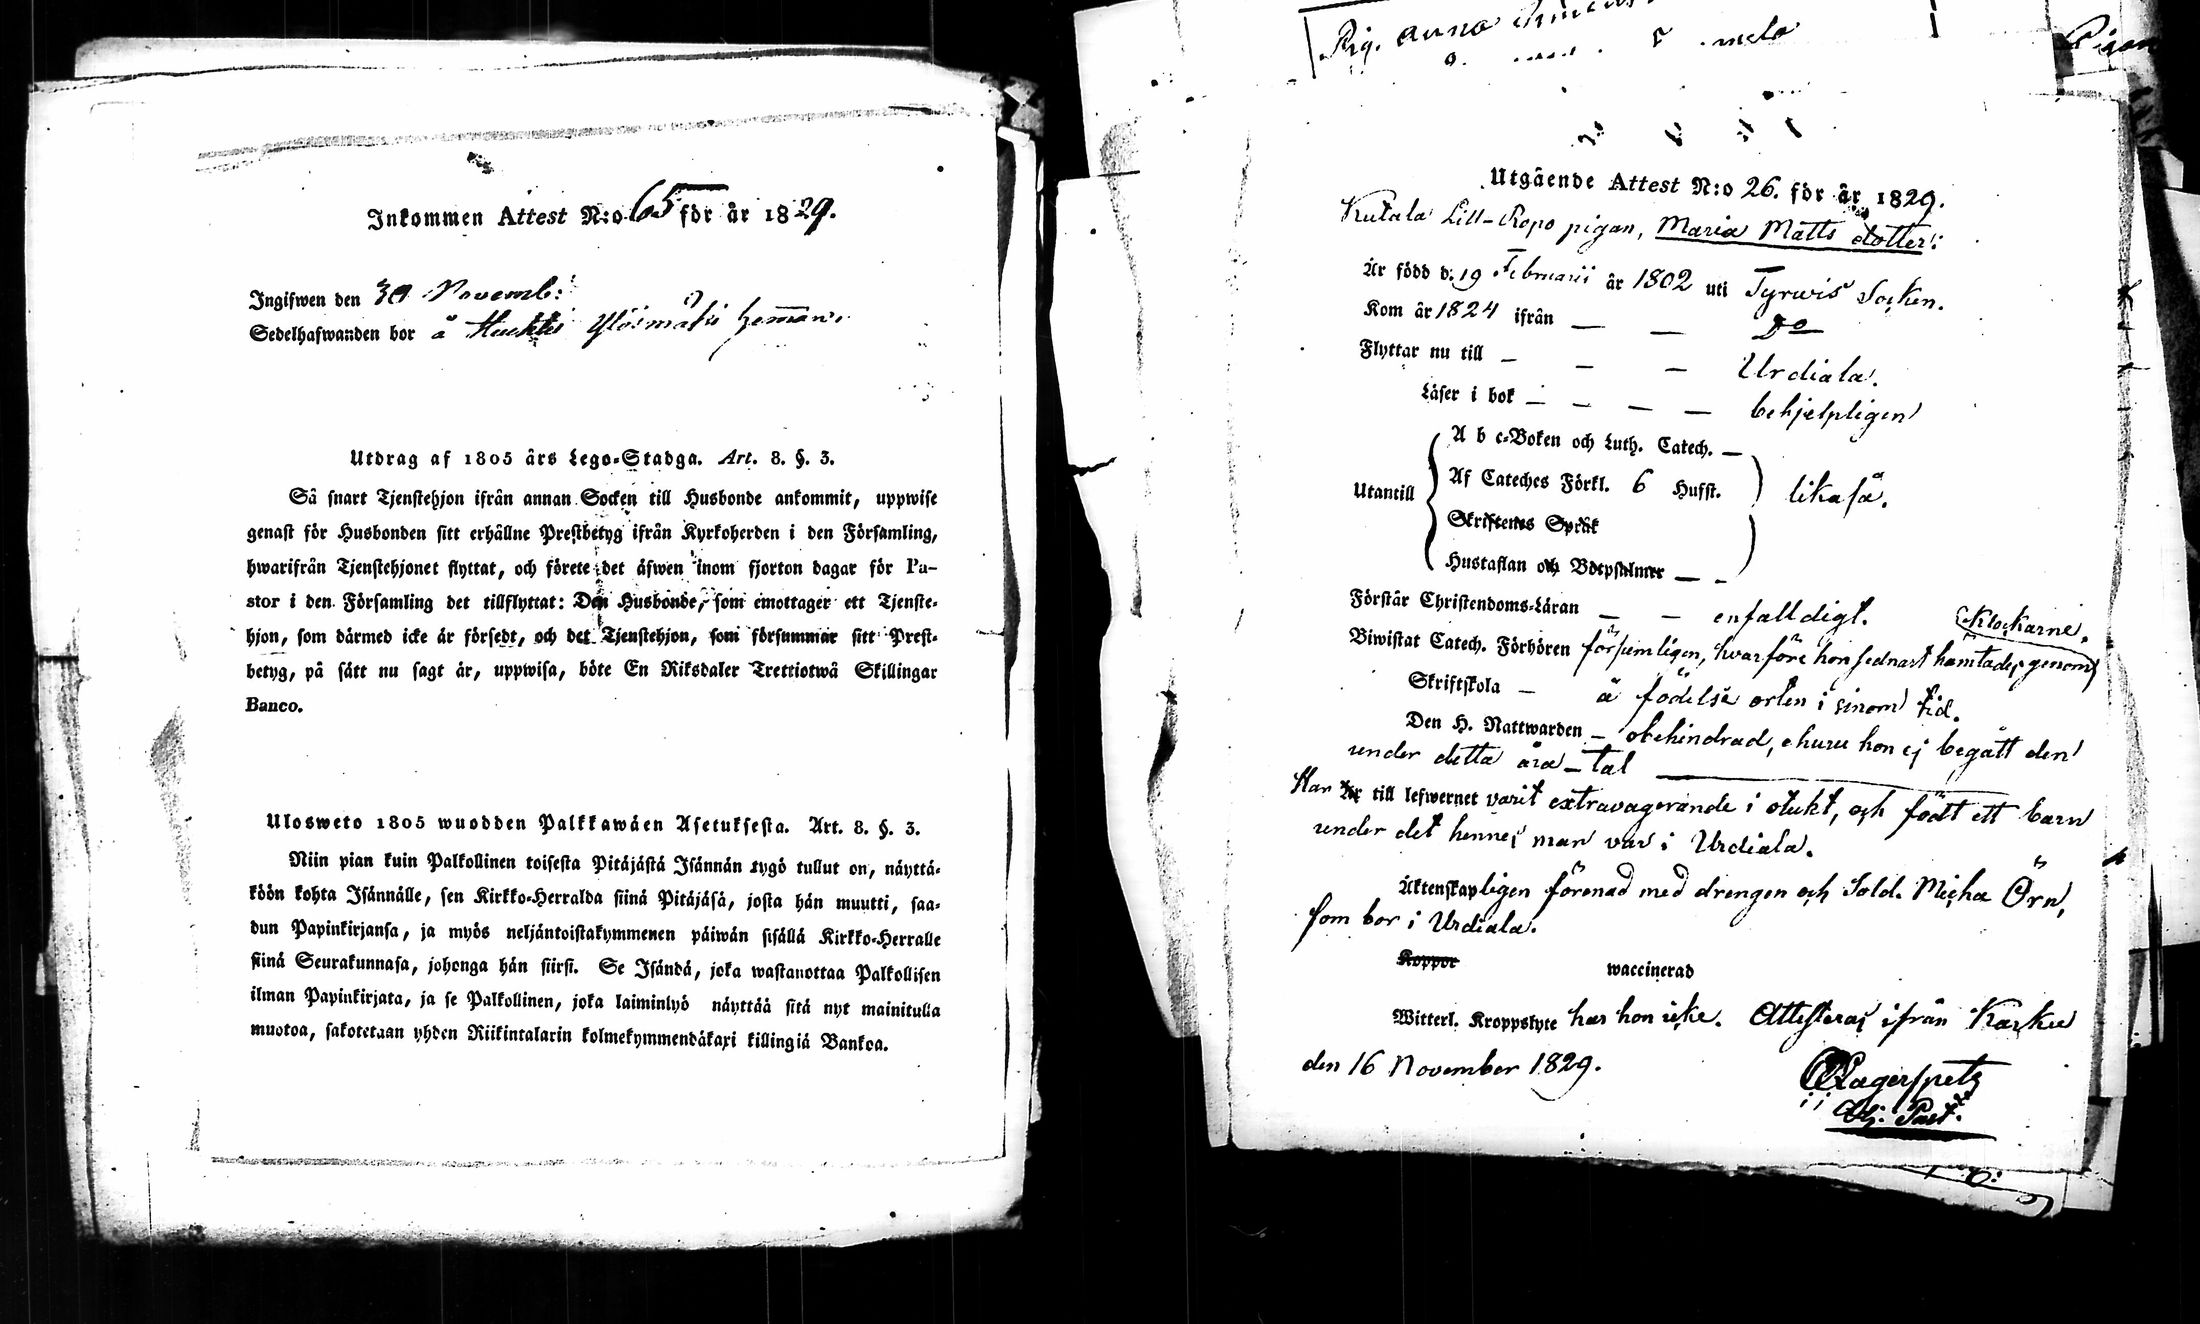 Inkommen Attest N:o 65 för år 1829.
Ingifwen den 30 Novemb:
Sedelhafwanden bor å Huhtis Ylösmäki hemman.
Utdrag af 1805 års Lego-Stadga. Art. 8. §. 3.
Så snart Tjenstehjon ifrån annan Socken till Husbonde ankommit, uppwise
genast för Husbonden sitt erhållne Prestbetyg ifrån Kyrkoherden i den Församling,
hwarifrån Tjenstehjonet flyttat, och förete det äfwen inom fjorton dagar för Pa-
stor i den Församling det tillflyttat: Den Husbonde, som emottager ett Tjenste-
hjon, som därmed icke är försedt, och det Tjenstehjon, som försummar sitt Prest-
betyg, på sätt nu sagt är, uppwisa, böte En Riksdaler Trettiotwå Skillingar
Banco.
Ulosweto 1805 wuodden Palkkawäen Asetuksesta. Art. 8. §. 3.
Niin pian kuin Palkollinen toisesta Pitäjästä Isännän tygö tullut on, näyttä-
köön kohta Isännälle, sen Kirkko-Herralda siinä Pitäjäsä, josta hän muutti, saa-
dun Papinkirjansa, ja myös neljäntoistakymmenen päiwän sisällä Kirkko-Herralle
siinä Seurakunnasa, johonga hän siirsi. Se Isändä, joka wastanottaa Palkollisen
ilman Papinkirjata, ja se Palkollinen, joka laiminlyö näyttää sitä nyt mainitulla
muotoa, sakotetaan yhden Riikintalarin kolmekymmendäkaxi killingiä Bankoa.
Pig. Anna
Utgående Attest N:o 26. för år 1829.
Kutala Lill-Ropo pigan, Maria Matts dotter:
Är född d. 19 Februarii år 1802 uti Tyrwis Socken.
Kom år 1824 ifrån — — Do
Flyttar nu till — — — Urdiala.
Läser i bok — — — — behjelpligen
A b c-Boken och Luth. Catech. —
Utantill Af Cateches Förkl. 6 Hufst. likaså.
Skriftenes Språk
Hustaflan och Botpsalmer — —
Förstår Christendoms-Läran — — enfalldigt.
Klockarne.
Biwistat Catech. Förhören försumligen, hvarföre hon sednast hämtades genom
Skriftskola — å födelse orten i sinom tid.
Den H. Nattwarden — obehindrad, ehuru hon ej begått den
under detta åra-tal
Har Är till lefwernet varit extravagerande i otukt, och födt ett barn
under det hennes man var i Urdiala.
Äktenskapligen förenad med drengen och Sold. Micha Örn,
som bor i Urdiala.
Koppor waccinerad
Witterl. Kroppslyte har hon icke. Attesteras ifrån Karku
den 16 November 1829.
Lagerspetz
Adj. Past.